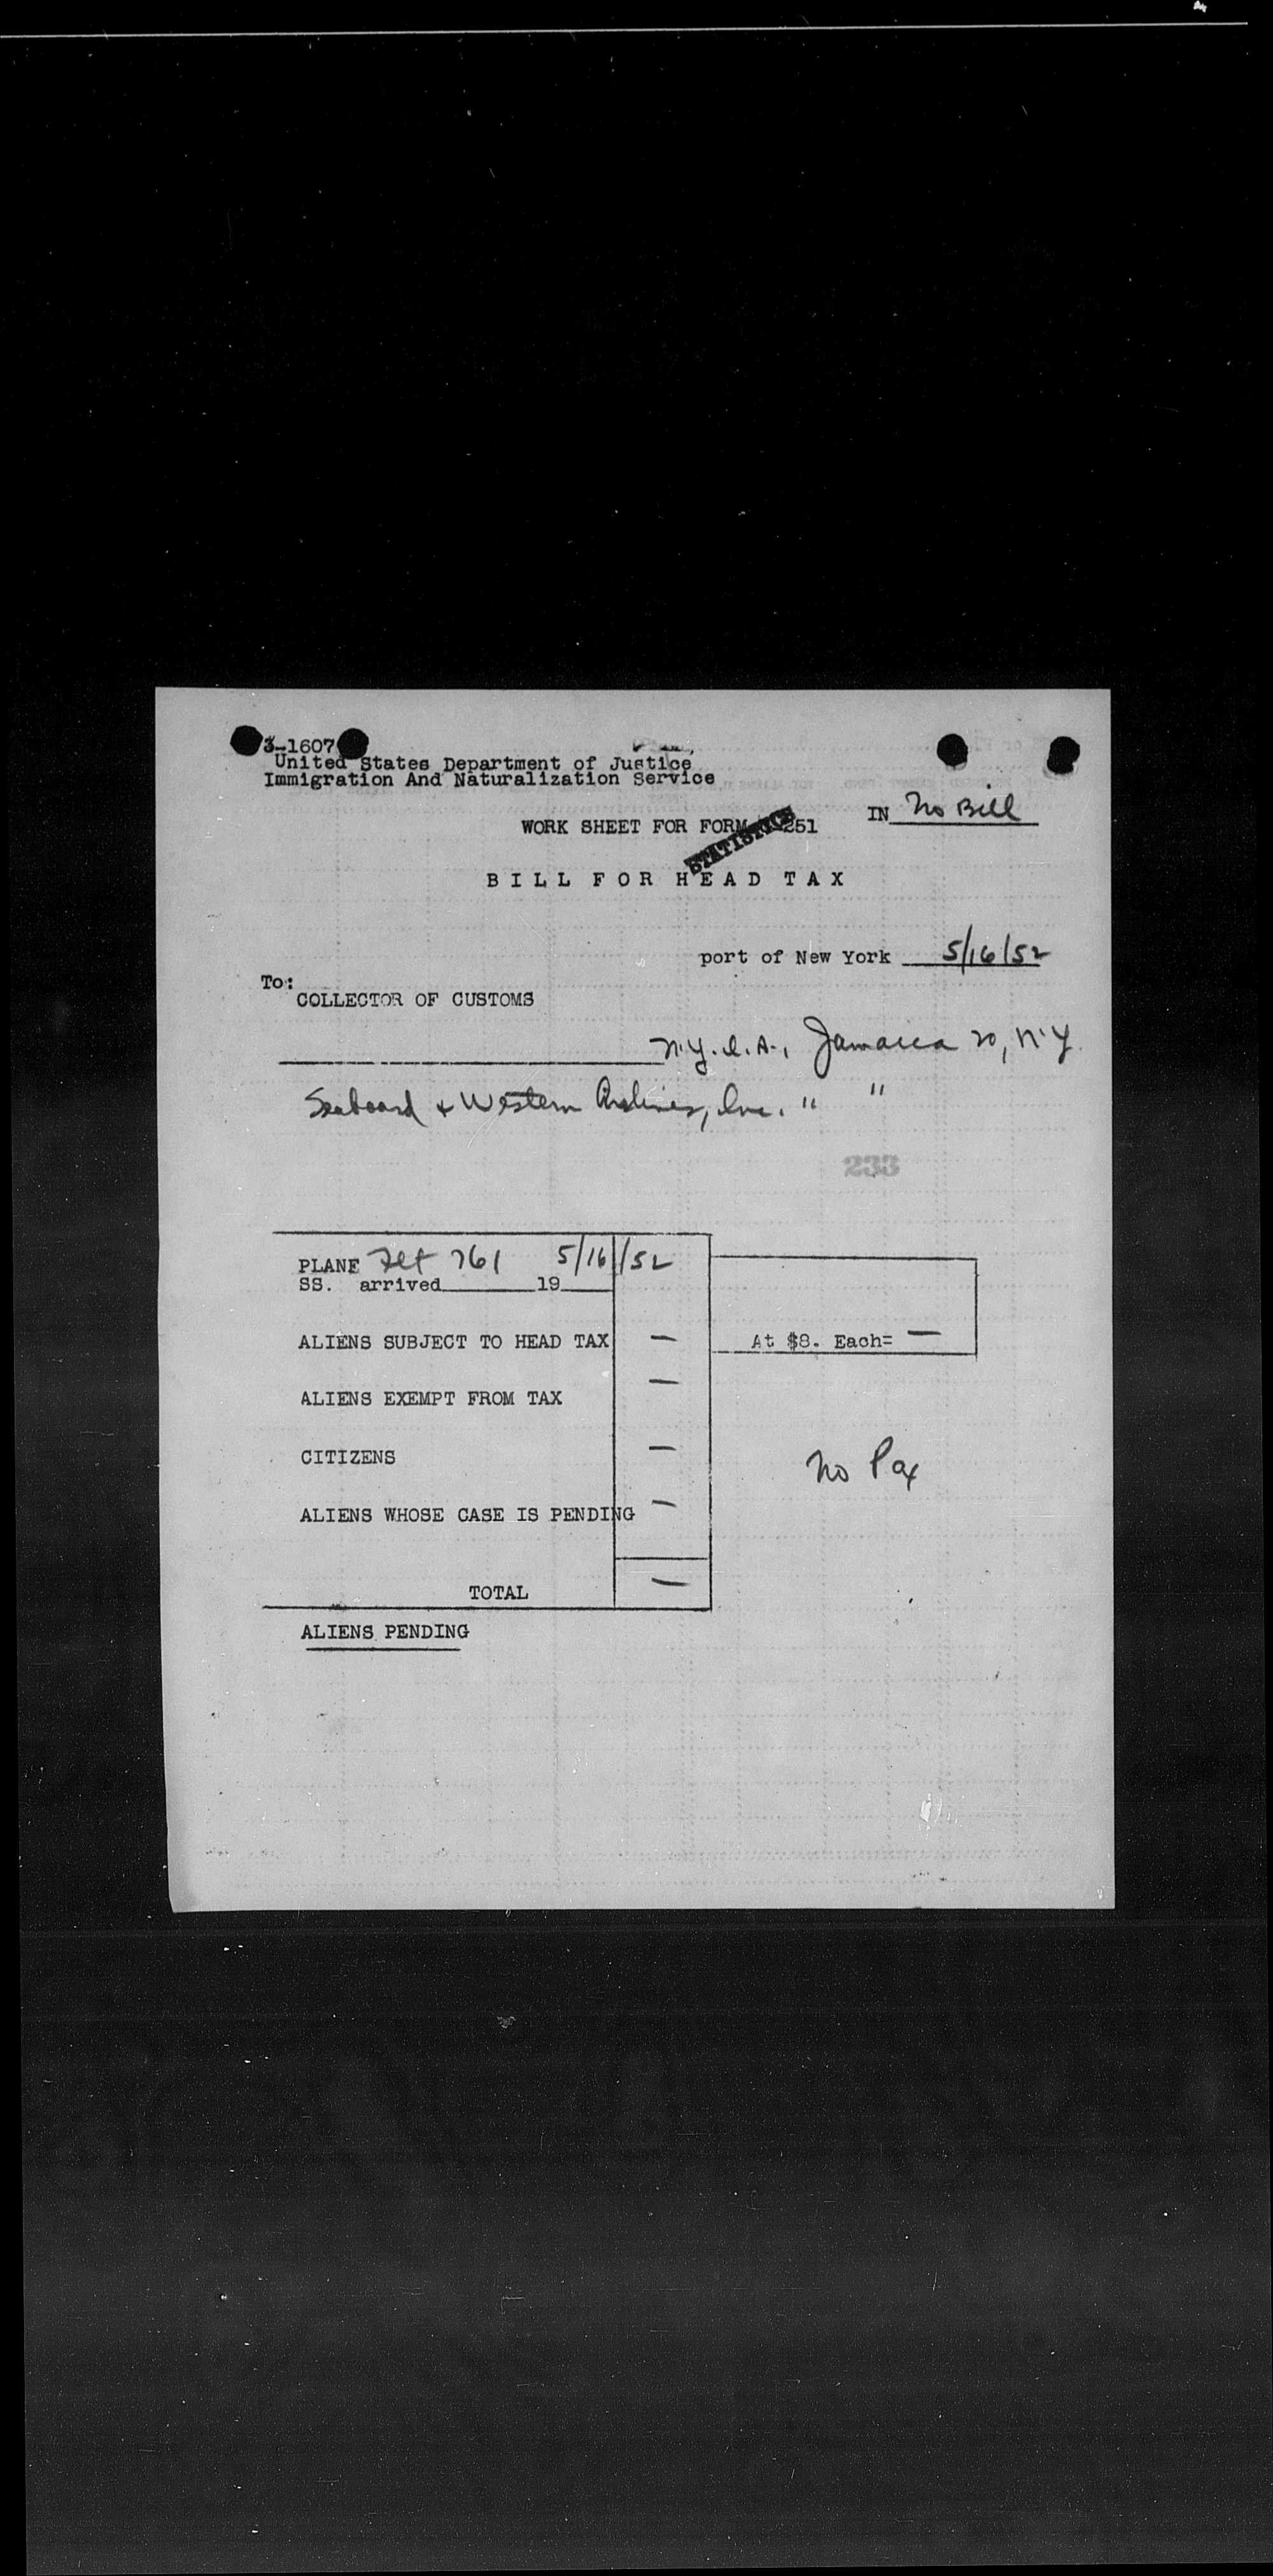 3-1607
United States Department of Justice
Immigration And Naturalization Service
IN No Bill
WORK SHEET FOR FORM 251
STATISTICS
BILL FOR HEAD TAX
port of New York 5/16/52
To:
COLLECTOR OF CUSTOMS
N.Y.I.A., Jamaica 20, N.Y.
Seaboard & Western Airlines, Inc. " "
233
PLANE Flt 761 5/16/52
SS. arrived 19
ALIENS SUBJECT TO HEAD TAX — At $8. Each= —
ALIENS EXEMPT FROM TAX —
CITIZENS —
No Pax
ALIENS WHOSE CASE IS PENDING —
TOTAL —
ALIENS PENDING